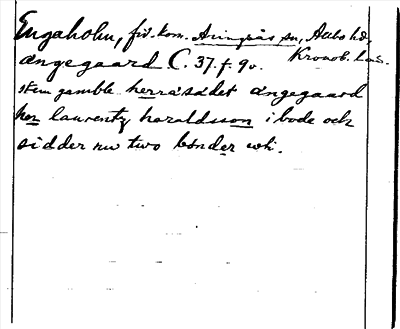 Engaholm, fid. kom. Aringsås sn, Allbo hd.
Kronob. län.
ængegaard C. 37. f. 9 v.
item gamble herrasædet ængegaard
her laurentz haraldsson i bode och
sidder nu two bønder uti.